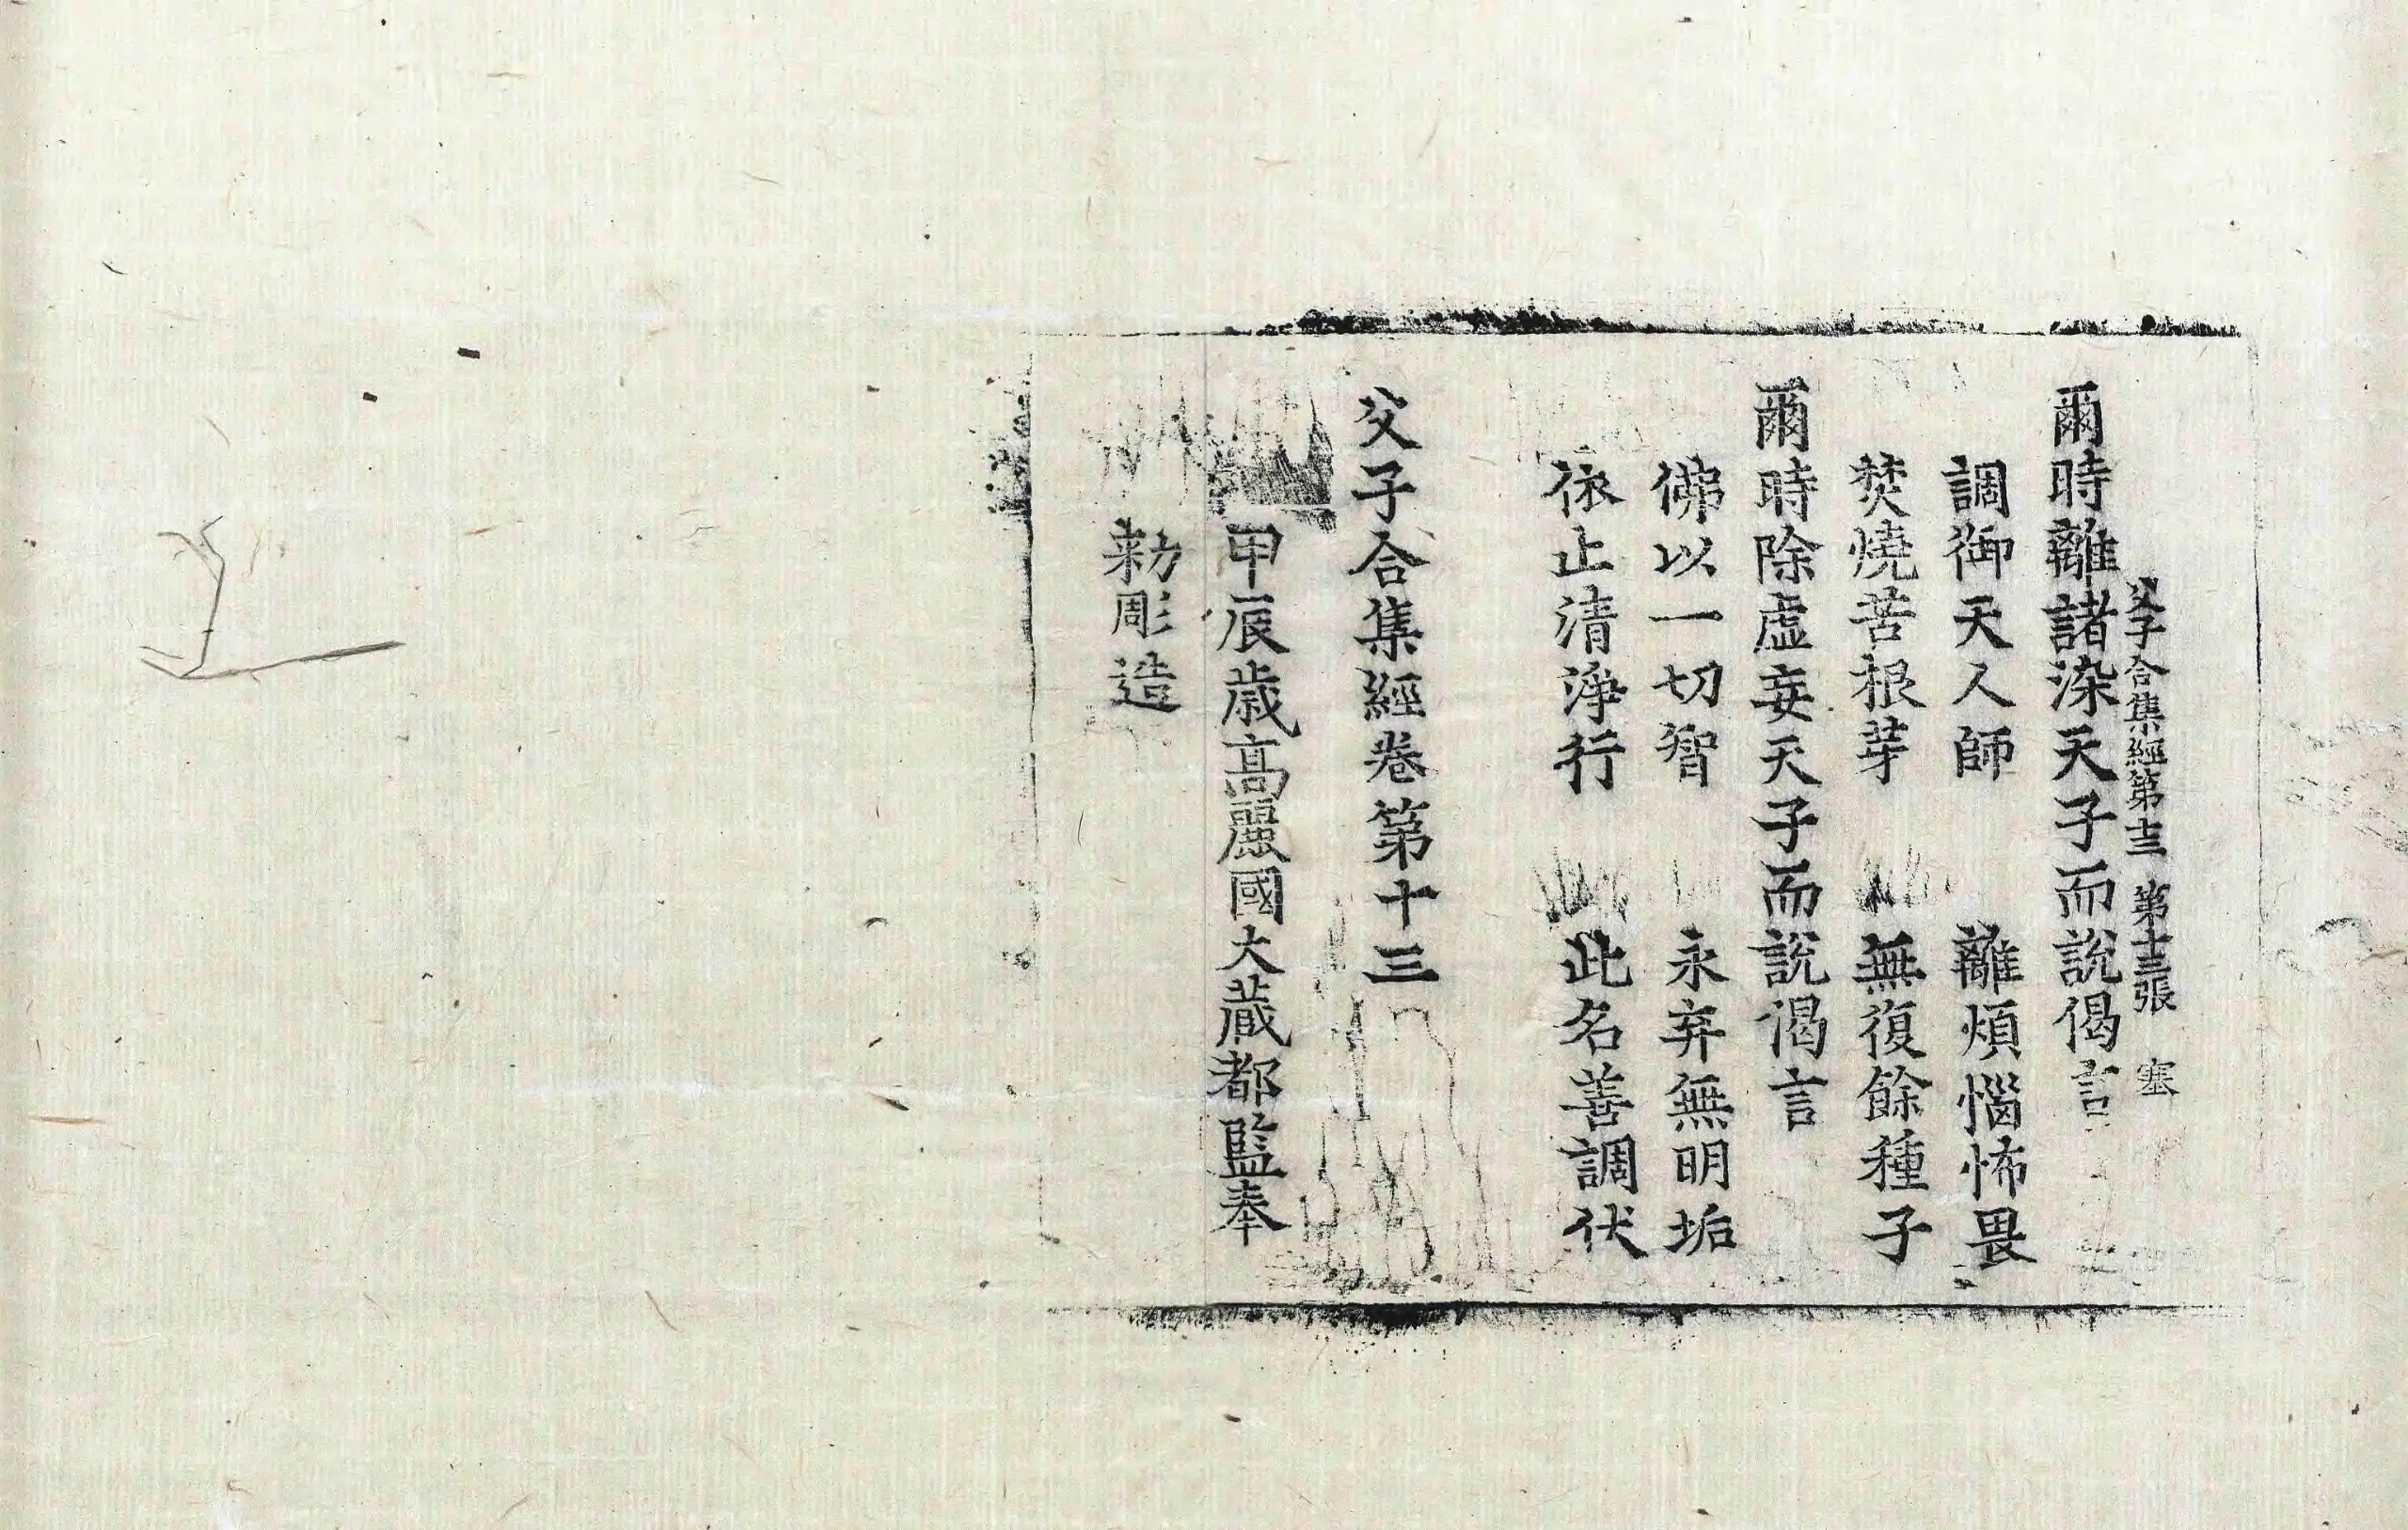 父子合集經第十三　第十三張　塞
爾時離諸染天子而說偈言
調御天人師　離煩惱怖畏
焚燒苦根芽　無復餘種子
爾時除虛妄天子而說偈言
佛以一切智　永弃無明垢
依止清淨行　此名善調伏
父子合集經卷第十三
甲辰歲高麗國大藏都監奉
勑彫造